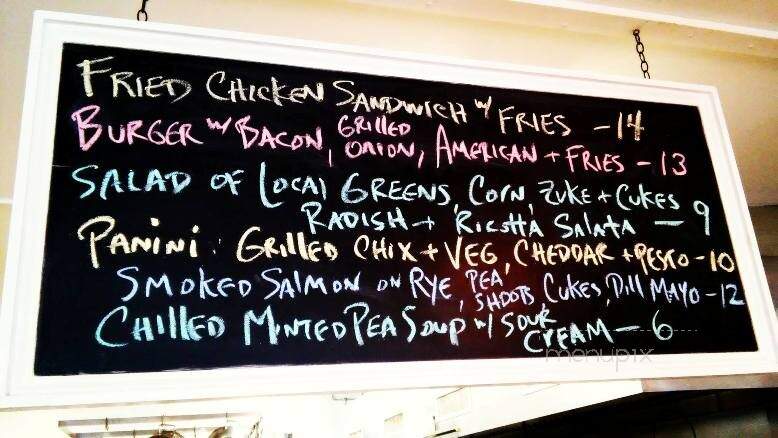 FRIED CHICKEN SANDWICH W/ FRIES - 14
BURGER W/ BACON, GRILLED ONION, AMERICAN + FRIES - 13
SALAD OF LOCAL GREENS, CORN, ZUKE + CUKES
RADISH + RICOTTA SALATA - 9
PANINI: GRILLED CHIX + VEG, CHEDDAR + PESTO - 10
SMOKED SALMON ON RYE, PEA SHOOTS, CUKES, DILL MAYO - 12
CHILLED MINTED PEA SOUP W/ SOUR CREAM - 6
menupix